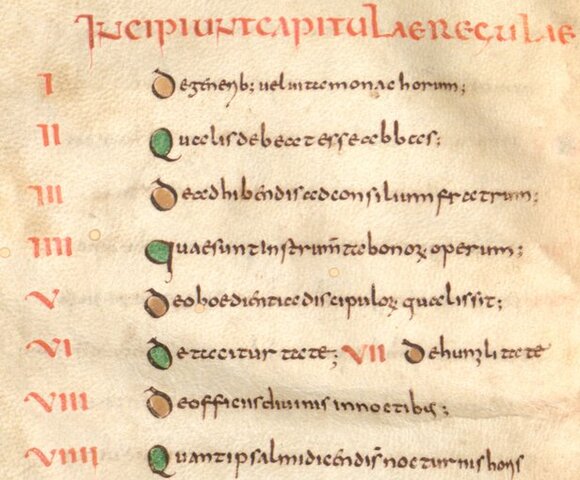 INCIPIUNT CAPITULAE REGULAE
I De generib; uel uita monachorum;
II Qualis debeat esse abbas;
III De adhibendis ad consilium fratrum;
IIII Quae sunt instrum̄ta bonoꝝ operum;
V De oboedientia discipuloꝝ qualis sit;
VI De taciturtate; VII De humilitate
VIII De officiis diuinis in noctibus;
VIIII Quanti psalmi dicendi s̄ nocturnis horis